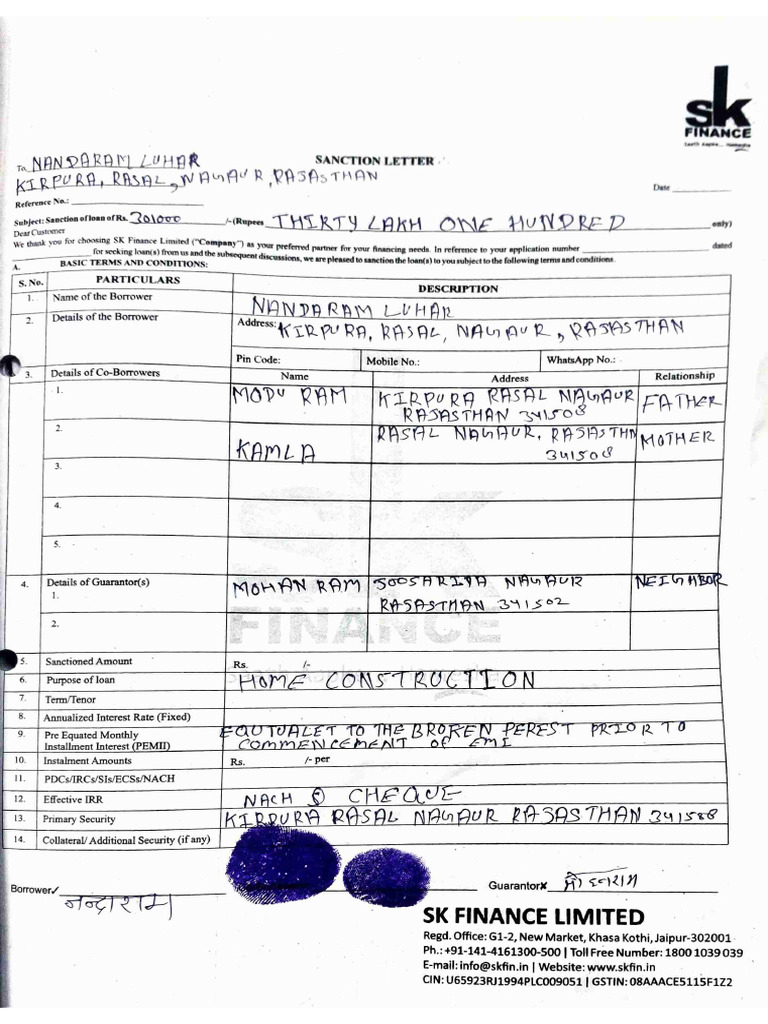 SK
FINANCE
To, NANDARAM LUHAR
SANCTION LETTER
KIRPURA, RASAL, NAGAUR, RAJASTHAN
Date
Reference No.:
Subject: Sanction of loan of Rs. 301000 /-(Rupees THIRTY LAKH ONE HUNDRED only)
Dear Customer
We thank you for choosing SK Finance Limited ("Company") as your preferred partner for your financing needs. In reference to your application number dated
for seeking loan(s) from us and the subsequent discussions, we are pleased to sanction the loan(s) to you subject to the following terms and conditions.
A. BASIC TERMS AND CONDITIONS:
S. No. PARTICULARS DESCRIPTION
1. Name of the Borrower NANDARAM LUHAR
2. Details of the Borrower Address: KIRPURA, RASAL, NAGAUR, RAJASTHAN
Pin Code: Mobile No.: WhatsApp No.:
3. Details of Co-Borrowers Name Address Relationship
1. MODU RAM KIRPURA RASAL NAGAUR RAJASTHAN 341508 FATHER
2. KAMLA RASAL NAGAUR, RAJASTHN 341508 MOTHER
3.
4.
5.
4. Details of Guarantor(s)
1. MOHAN RAM JOOSARIYA NAGAUR RAJASTHAN 341502 NEIGHBOR
2.
FINANCE
5. Sanctioned Amount Rs. /-
6. Purpose of loan HOME CONSTRUCTION
7. Term/Tenor
8. Annualized Interest Rate (Fixed)
9. Pre Equated Monthly Installment Interest (PEMII) EQUTUALET TO THE BROKEN PEREST PRIOR TO COMMENCEMENT OF EMI
10. Instalment Amounts Rs. /- per
11. PDCs/IRCs/SIs/ECSs/NACH
12. Effective IRR NACH CHEQUE
13. Primary Security KIRPURA RASAL NAGAUR RAJASTHAN 341508
14. Collateral/ Additional Security (if any)
Borrower नन्दाराम
Guarantor
SK FINANCE LIMITED
Regd. Office: G1-2, New Market, Khasa Kothi, Jaipur-302001
Ph.: +91-141-4161300-500 | Toll Free Number: 1800 1039 039
E-mail: info@skfin.in | Website: www.skfin.in
CIN: U65923RJ1994PLC009051 | GSTIN: 08AAACE5115F1Z2